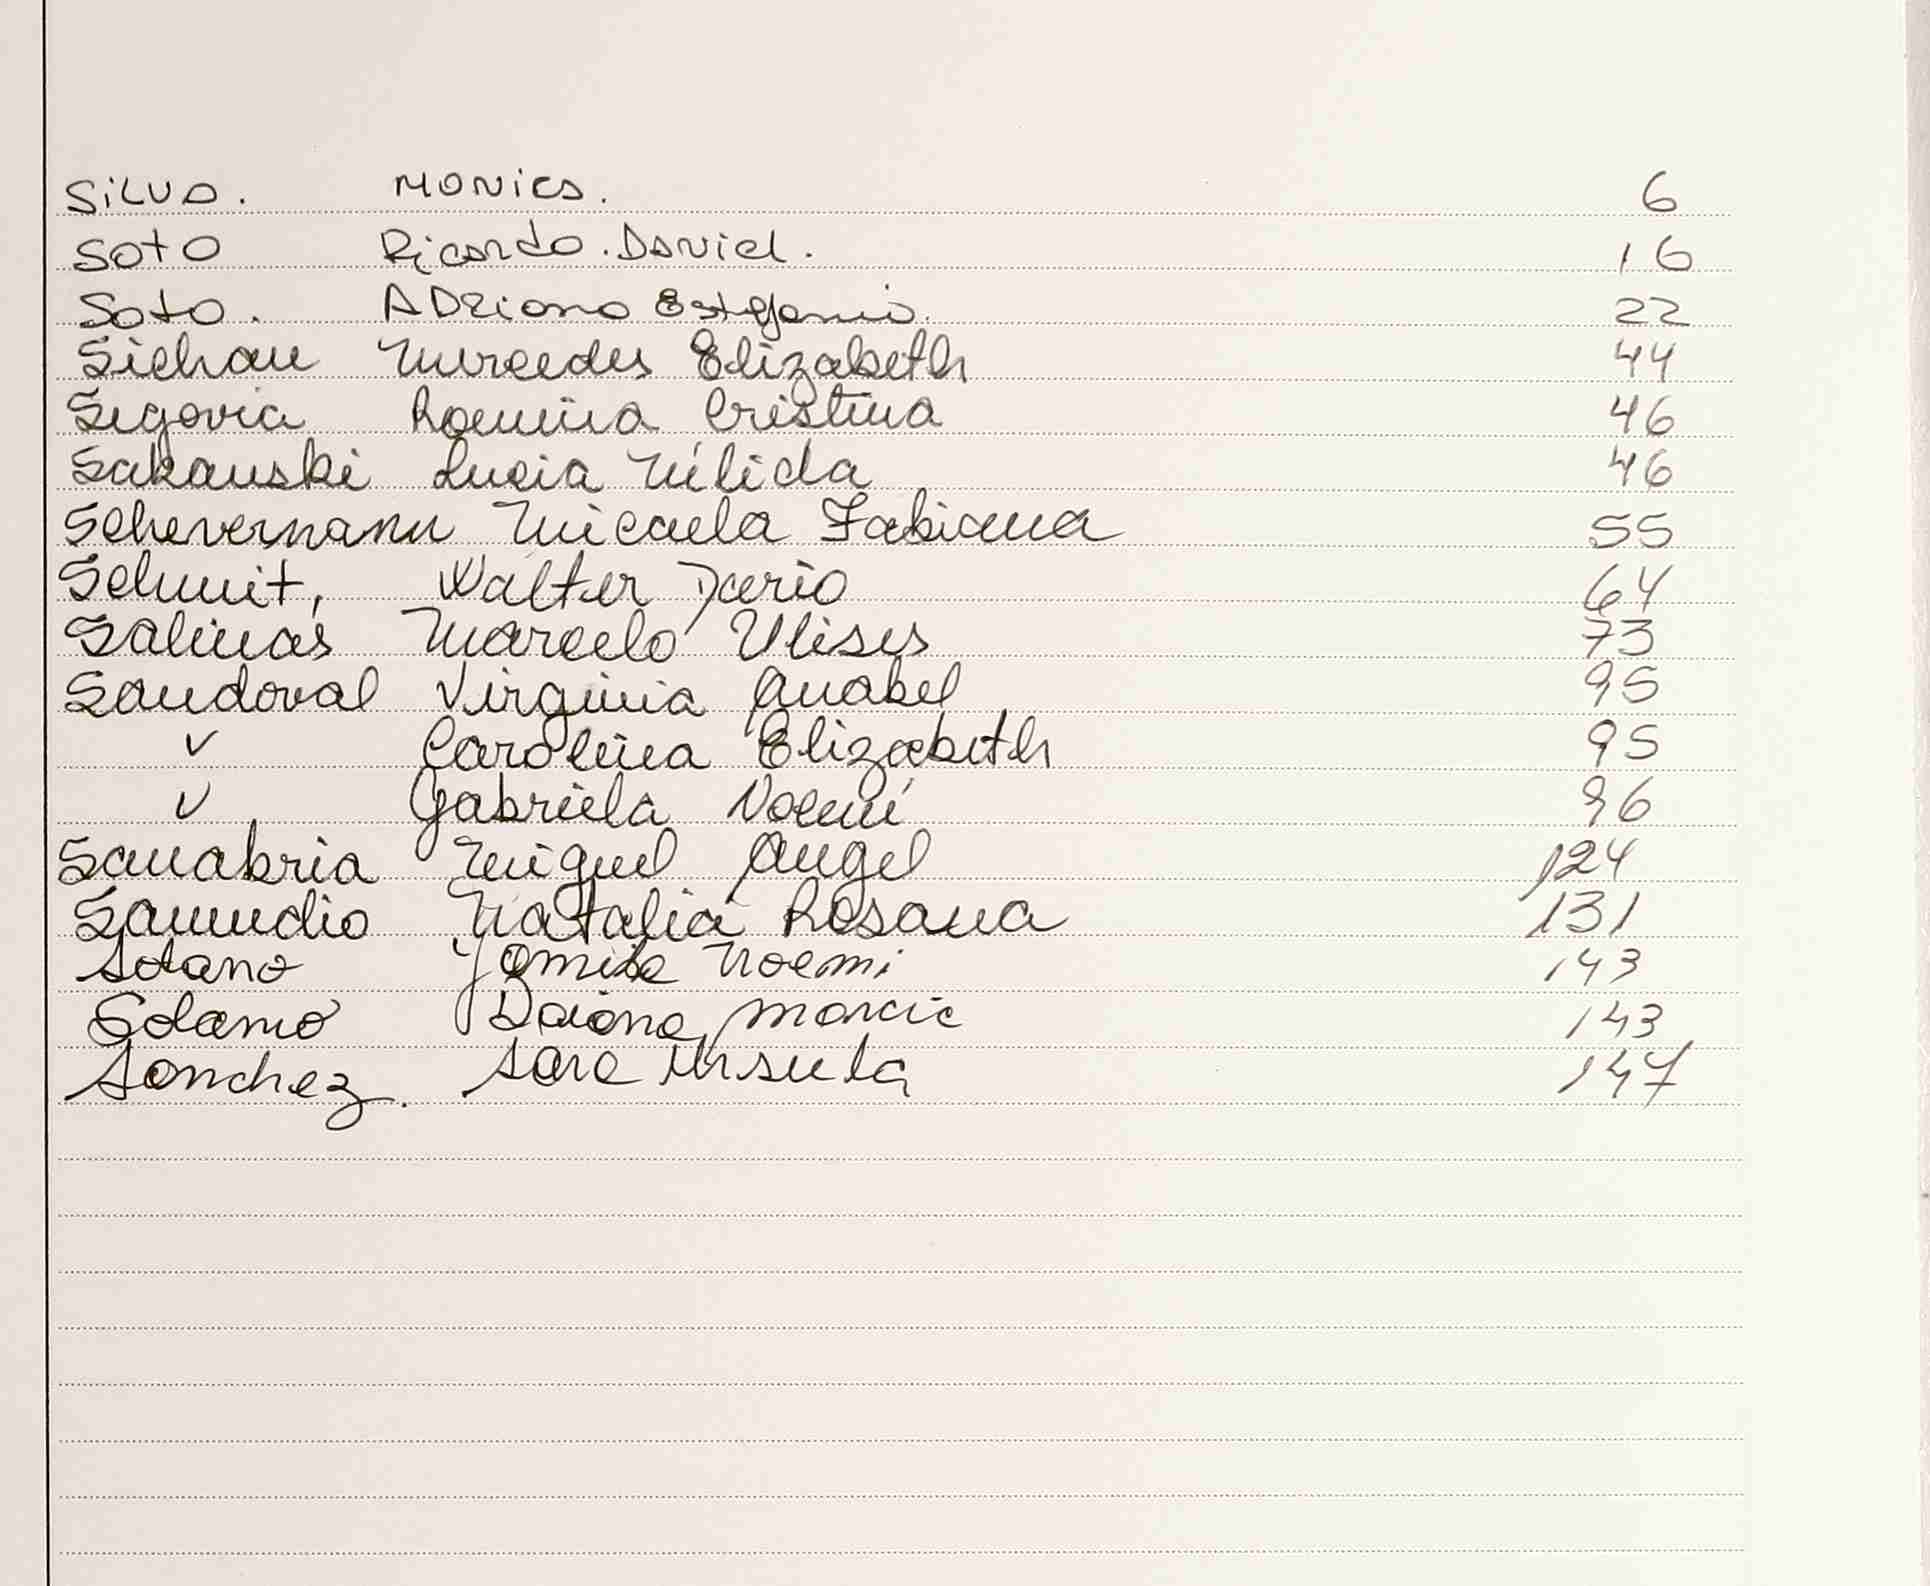 Silva. Monica. 6
Soto Ricardo. Daniel. 16
Soto. Adriana Estefania. 22
Sichau Mercedes Elizabeth 44
Segovia Romina Cristina 46
Sakauski Lucia Nélida 46
Schevernann Micaela Fabiana 55
Schmit, Walter Dario 64
Salinas Marcelo Ulises 73
Sandoval Virginia Anabel 95
v Carolina Elizabeth 95
v Gabriela Noemí 96
Sanabria Miguel Angel 124
Samudio Natalia Rosana 131
Solano Yamila Noemi 143
Solano Daiana Marcia 143
Sanchez. Sara Ursula 147